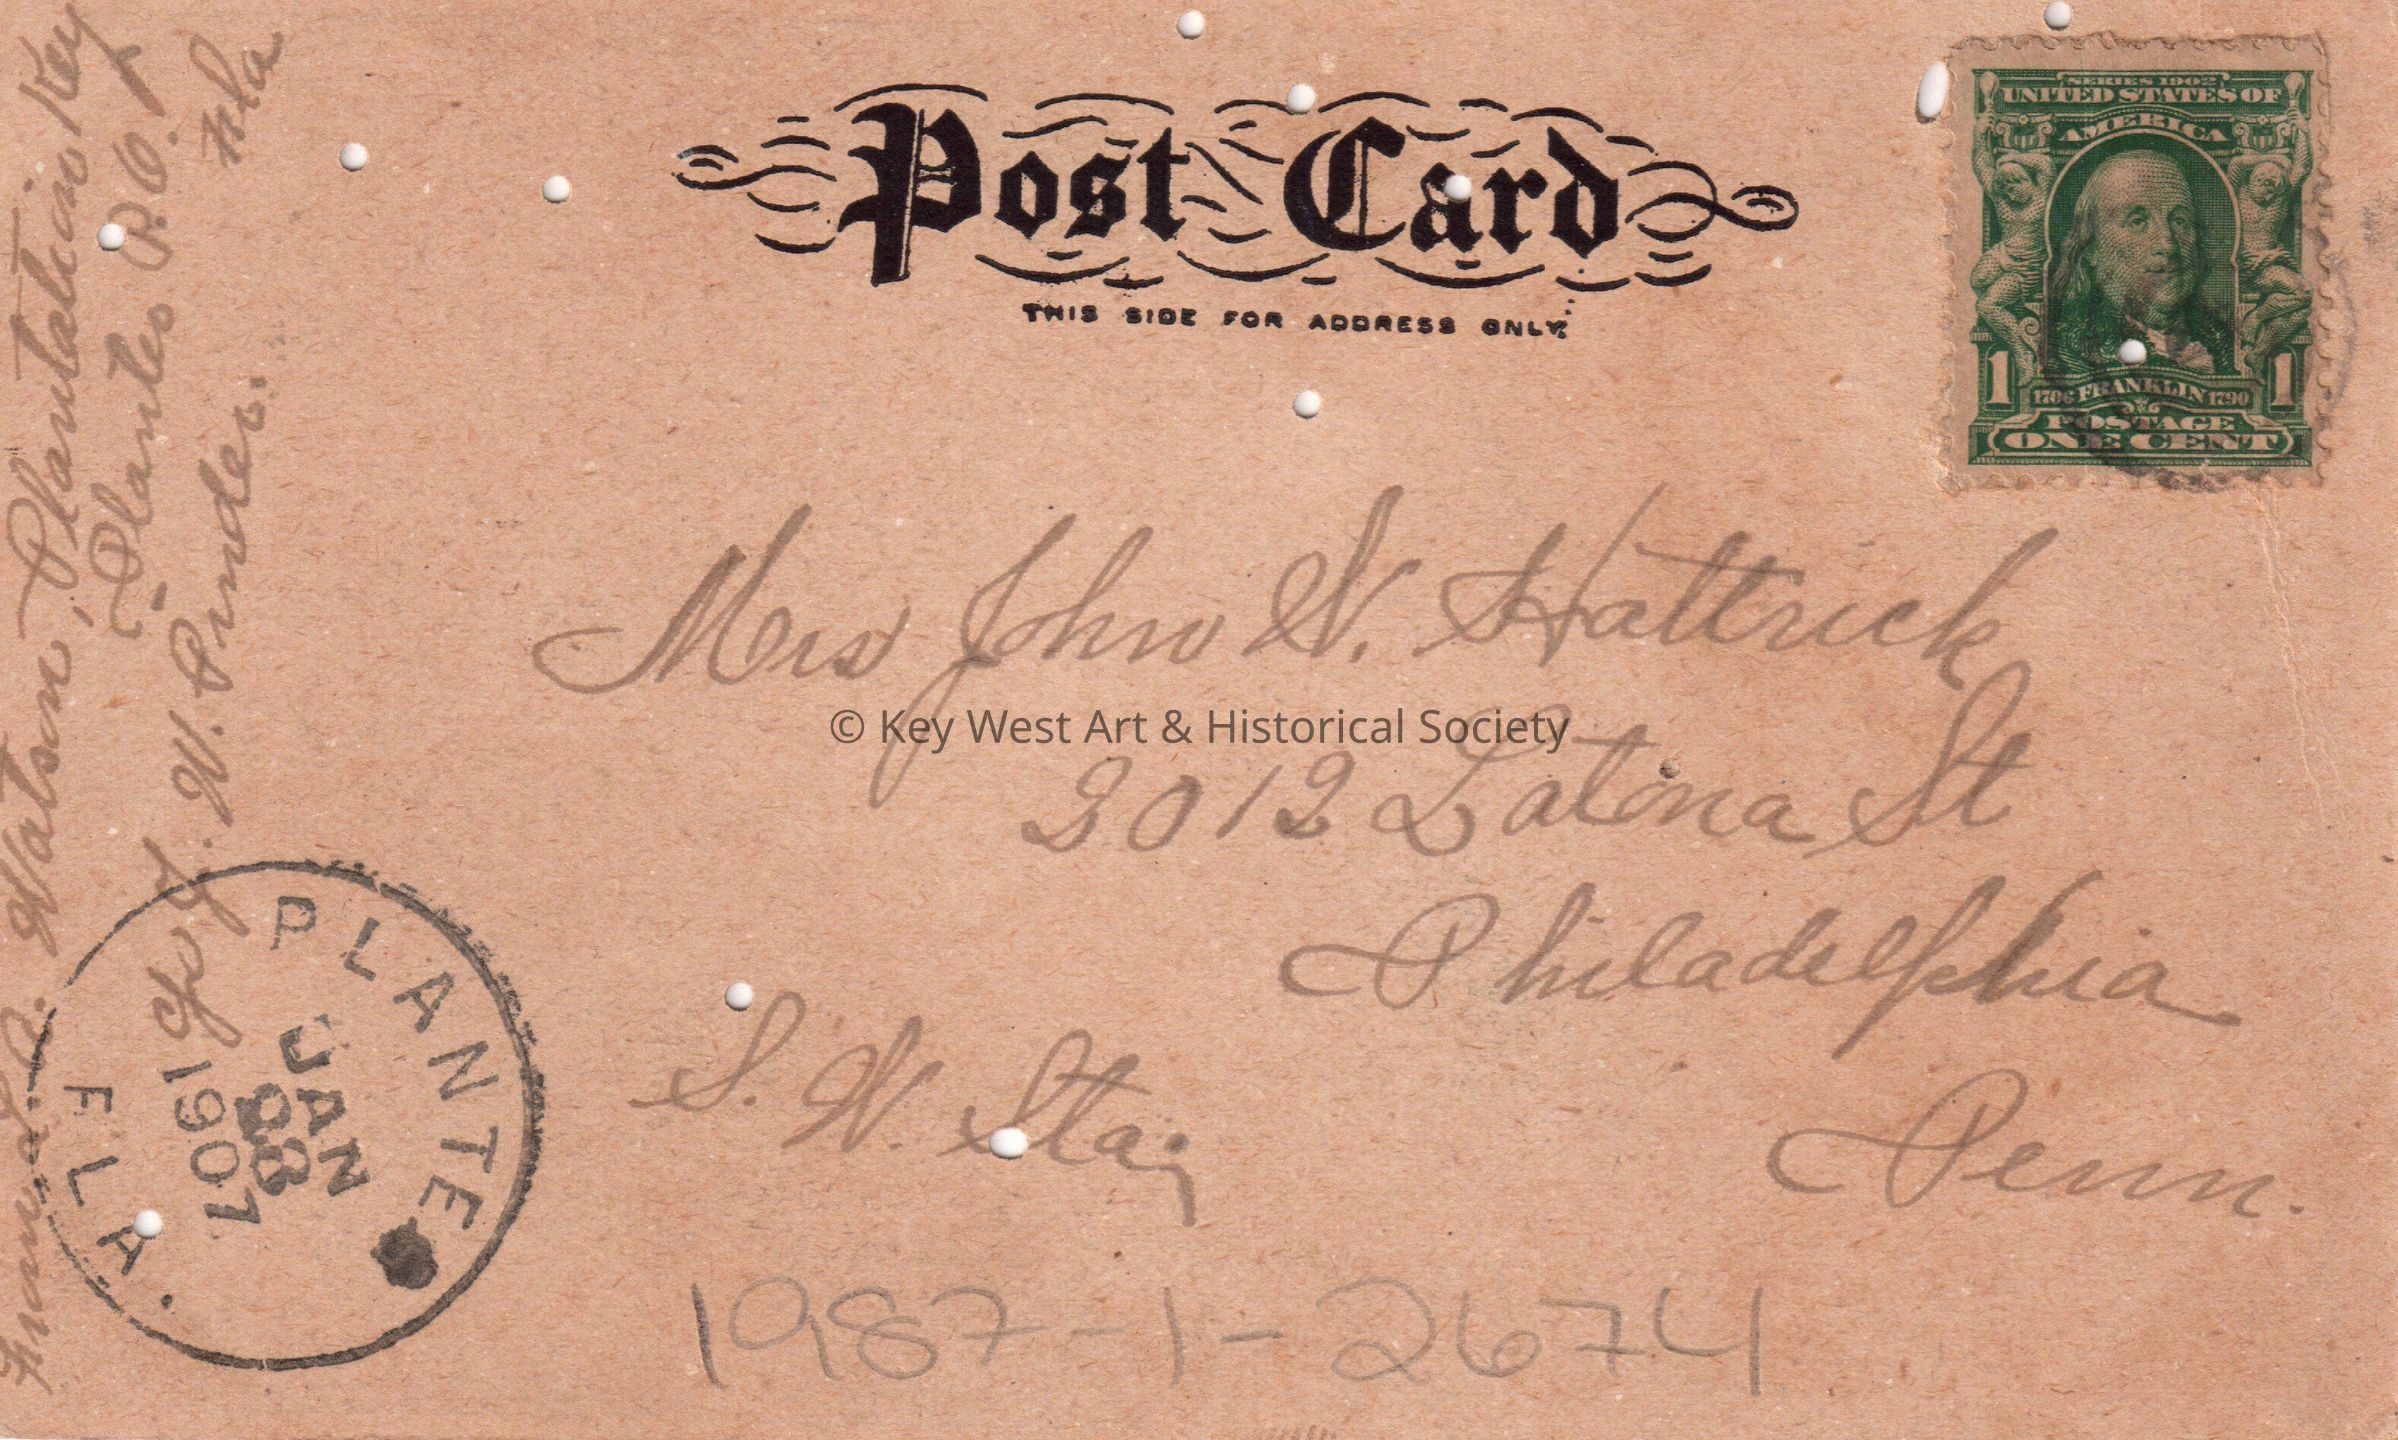 Post Card
THIS SIDE FOR ADDRESS ONLY.
SERIES 1902
UNITED STATES OF
AMERICA
1 1706 FRANKLIN 1790 1
POSTAGE
ONE CENT
Mrs John W. Hattrick
© Key West Art & Historical Society
2012 Latona St
Philadelphia
Penn.
S. W. Sta;
Watson, Plantation Key
Planter P.O.
Fla
c/o J. W. Pinder.
PLANTER
JAN
1907
FLA.
1987-1-2674